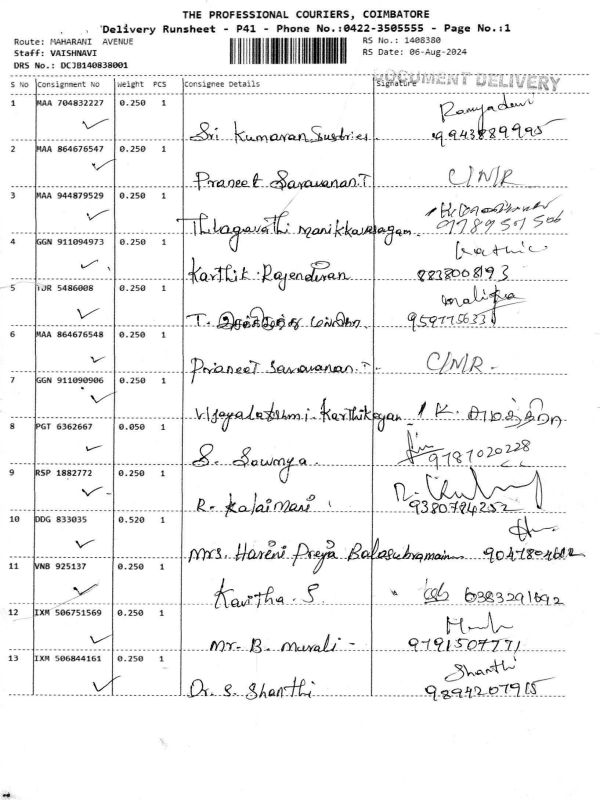 THE PROFESSIONAL COURIERS, COIMBATORE
Delivery Runsheet - P41 - Phone No.:0422-3505555 - Page No.:1
Route: MAHARANI AVENUE RS No.: 1408380
Staff: VAISHNAVI RS Date: 06-Aug-2024
DRS No.: DCJB140838001
DOCUMENT DELIVERY
S No Consignment No Weight PCS Consignee Details Signature
1 MAA 704832227 0.250 1 Ramyadevi
Sri Kumaran Sustries 9943889995
2 MAA 864676547 0.250 1
Praneet Saravanan.T C/NR
3 MAA 944879529 0.250 1
Thilagavathi manikkavasagam 9789501506
4 GGN 911094973 0.250 1 Karthic
Karthik.Rajendiran 8838008193
5 TUR 5486008 0.250 1 malika
T. 959775633
6 MAA 864676548 0.250 1
Praneet Saravanan.T. C/NR-
7 GGN 911090906 0.250 1
Vijayalakshmi.Karthikeyan K.
8 PGT 6362667 0.050 1
S. Sowmya. 9787020228
9 RSP 1882772 0.250 1
R. Kalaimani 9380794252
10 DDG 833035 0.520 1
Mrs. Hareni Preya Balasubramain 9047804602
11 VNB 925137 0.250 1
Kavitha.S 6383291692
12 IXM 506751569 0.250 1
Mr. B. Murali - 9791507771
13 IXM 506844161 0.250 1 Shanthi
Dr. S. Shanthi 9894207915